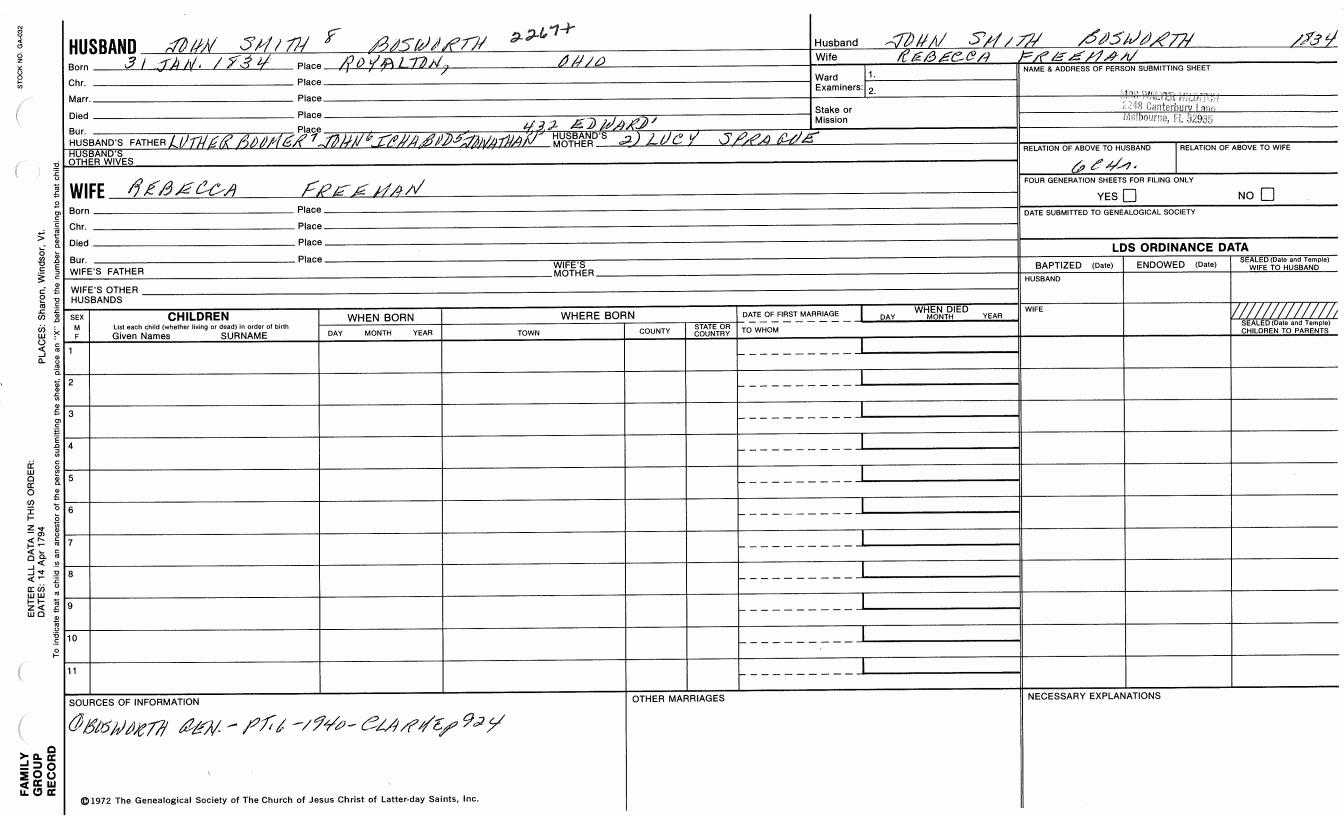 STOCK NO. GA-032
HUSBAND JOHN SMITH 8 BOSWORTH 2267+
Born 31 JAN. 1834 Place ROYALTON, OHIO
Chr. Place
Marr. Place
Died Place
Bur. Place
432 EDWARD1
HUSBAND'S FATHER LUTHER BOOMER7 JOHN6 ICHABOD5 JONATHAN HUSBAND'S MOTHER 2) LUCY SPRAGUE
HUSBAND'S OTHER WIVES
WIFE REBECCA FREEMAN
Born Place
Chr. Place
Died Place
Bur. Place
WIFE'S FATHER WIFE'S MOTHER
WIFE'S OTHER HUSBANDS
Husband JOHN SMITH BOSWORTH 1834
Wife REBECCA FREEMAN
Ward Examiners: 1.
2.
Stake or Mission
NAME & ADDRESS OF PERSON SUBMITTING SHEET
MRS WALTER
2248 Canterbury Lane
Melbourne, FL 52935
RELATION OF ABOVE TO HUSBAND RELATION OF ABOVE TO WIFE
FOUR GENERATION SHEETS FOR FILING ONLY
YES NO
DATE SUBMITTED TO GENEALOGICAL SOCIETY
LDS ORDINANCE DATA
BAPTIZED (Date) ENDOWED (Date) SEALED (Date and Temple) WIFE TO HUSBAND
HUSBAND
WIFE
SEALED (Date and Temple) CHILDREN TO PARENTS
SEX M F
CHILDREN
List each child (whether living or dead) in order of birth
Given Names SURNAME
WHEN BORN
DAY MONTH YEAR
WHERE BORN
TOWN COUNTY STATE OR COUNTRY
DATE OF FIRST MARRIAGE
TO WHOM
WHEN DIED
DAY MONTH YEAR
1
2
3
4
5
6
7
8
9
10
11
SOURCES OF INFORMATION
① BOSWORTH GEN. - PT. 6 - 1940 - CLARKE p 924
OTHER MARRIAGES
NECESSARY EXPLANATIONS
©1972 The Genealogical Society of The Church of Jesus Christ of Latter-day Saints, Inc.
FAMILY GROUP RECORD
ENTER ALL DATA IN THIS ORDER:
DATES: 14 Apr 1794 PLACES: Sharon, Windsor, Vt.
To indicate that a child is an ancestor of the person submitting the sheet, place an "X" behind the number pertaining to that child.